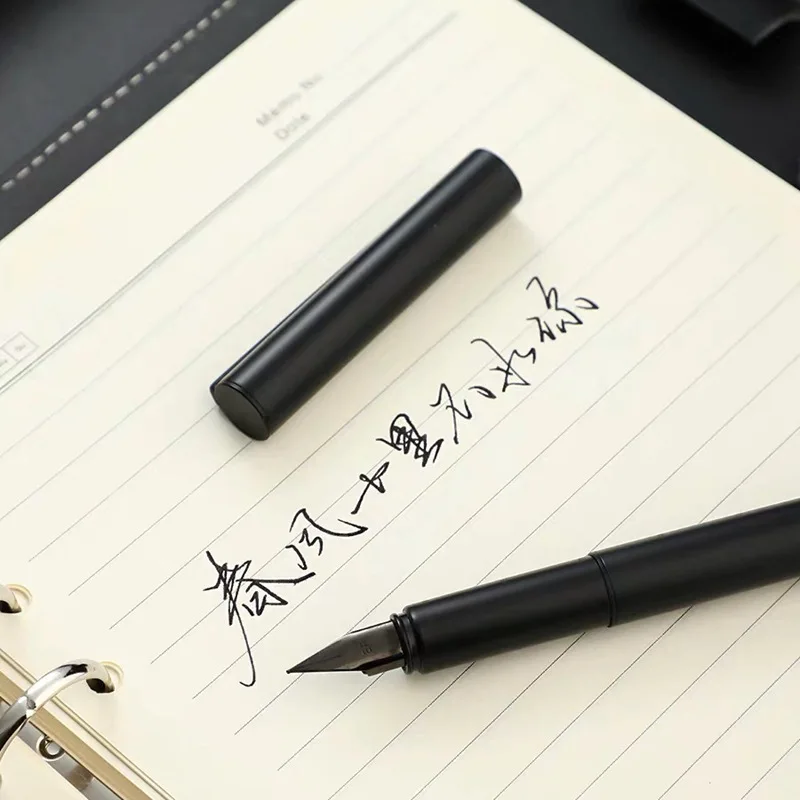 Memo No.
Date
春风十里不如你